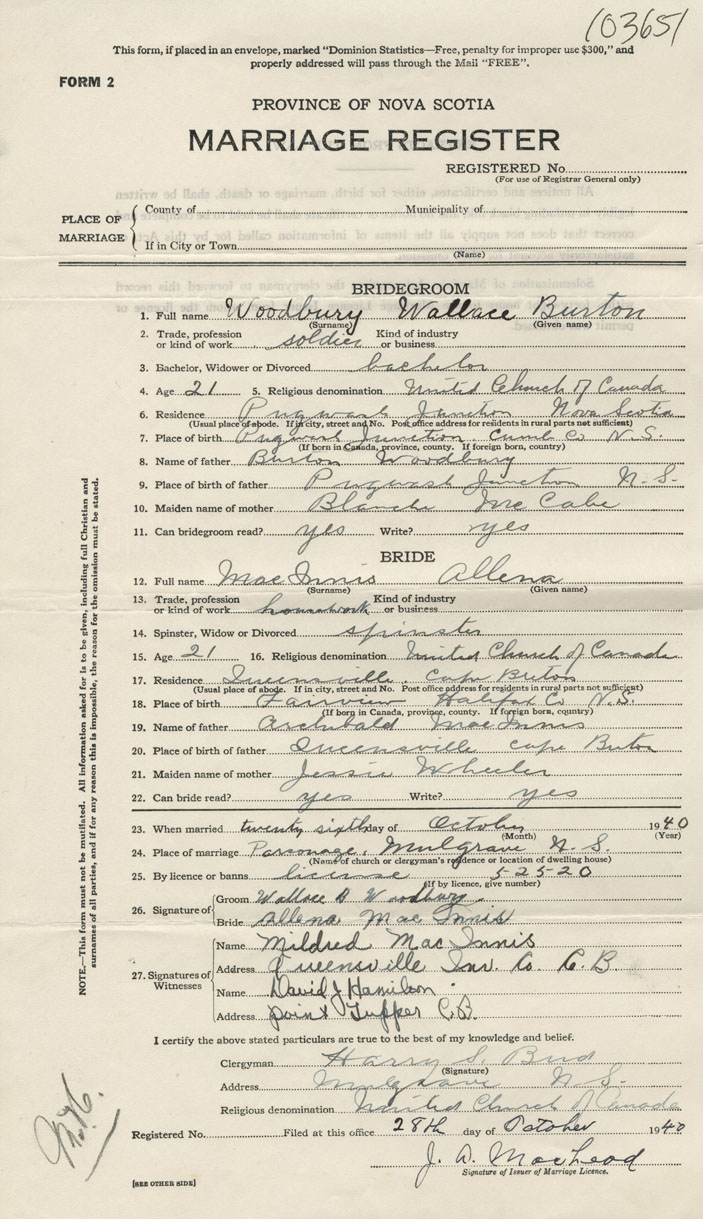 103651
This form, if placed in an envelope, marked "Dominion Statistics—Free, penalty for improper use $300," and
properly addressed will pass through the Mail "FREE".
FORM 2
PROVINCE OF NOVA SCOTIA
MARRIAGE REGISTER
REGISTERED No.
(For use of Registrar General only)
PLACE OF MARRIAGE
County of Municipality of
If in City or Town
(Name)
BRIDEGROOM
1. Full name Woodbury Wallace Burton
(Surname) (Given name)
2. Trade, profession or kind of work soldier Kind of industry or business
3. Bachelor, Widower or Divorced bachelor
4. Age 21 5. Religious denomination United Church of Canada
6. Residence Pugwash Junction Nova Scotia
(Usual place of abode. If in city, street and No. Post office address for residents in rural parts not sufficient)
7. Place of birth Pugwash Junction Cumb Co N.S.
(If born in Canada, province, county. If foreign born, country)
8. Name of father Burton Woodbury
9. Place of birth of father Pugwash Junction N.S.
10. Maiden name of mother Blanche McCabe
11. Can bridegroom read? yes Write? yes
BRIDE
12. Full name MacInnis Allena
(Surname) (Given name)
13. Trade, profession or kind of work housework Kind of industry or business
14. Spinster, Widow or Divorced spinster
15. Age 21 16. Religious denomination United Church of Canada
17. Residence Queensville Cape Breton
(Usual place of abode. If in city, street and No. Post office address for residents in rural parts not sufficient)
18. Place of birth Fairview Halifax Co N.S.
(If born in Canada, province, county. If foreign born, country)
19. Name of father Archibald MacInnis
20. Place of birth of father Queensville Cape Breton
21. Maiden name of mother Jessie Wheeler
22. Can bride read? yes Write? yes
23. When married twenty sixth day of October 1940
(Month) (Year)
24. Place of marriage Parsonage, Mulgrave N.S.
(Name of church or clergyman's residence or location of dwelling house)
25. By licence or banns license 52520
(If by licence, give number)
26. Signature of
Groom Wallace B Woodbury
Bride Allena MacInnis
27. Signatures of Witnesses
Name Mildred MacInnis
Address Queensville Inv. Co. C.B
Name David J Hamilson
Address Point Tupper C.B.
I certify the above stated particulars are true to the best of my knowledge and belief.
Clergyman Harry S.
(Signature)
Address Mulgrave N.S.
Religious denomination United Church of Canada
Registered No. Filed at this office 28th day of October 1940
J. A. MacLeod
Signature of Issuer of Marriage Licence.
[SEE OTHER SIDE]
NOTE.—This form must not be mutilated. All information asked for is to be given, including full Christian and
surnames of all parties, and if for any reason this is impossible, the reason for the omission must be stated.